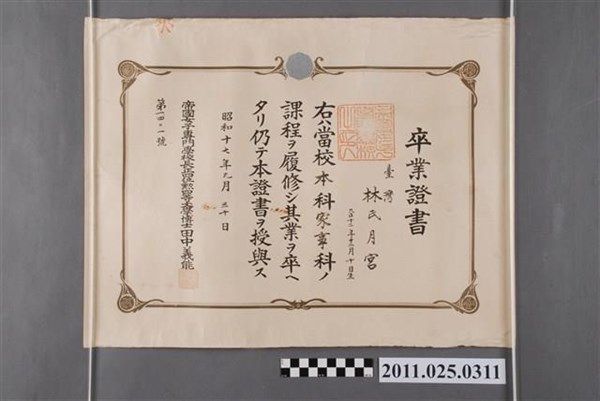 卒業證書
臺灣
林氏月宮
大正十二年十二月十日生
右ハ當校本科家事科ノ
課程ヲ履修シ其業ヲ卒ヘ
タリ仍テ本證書ヲ授與ス
昭和十七年九月三十日
帝國女子專門學校長正五位勲四等文學博士田中義能
第一四〇一號
2011.025.0311